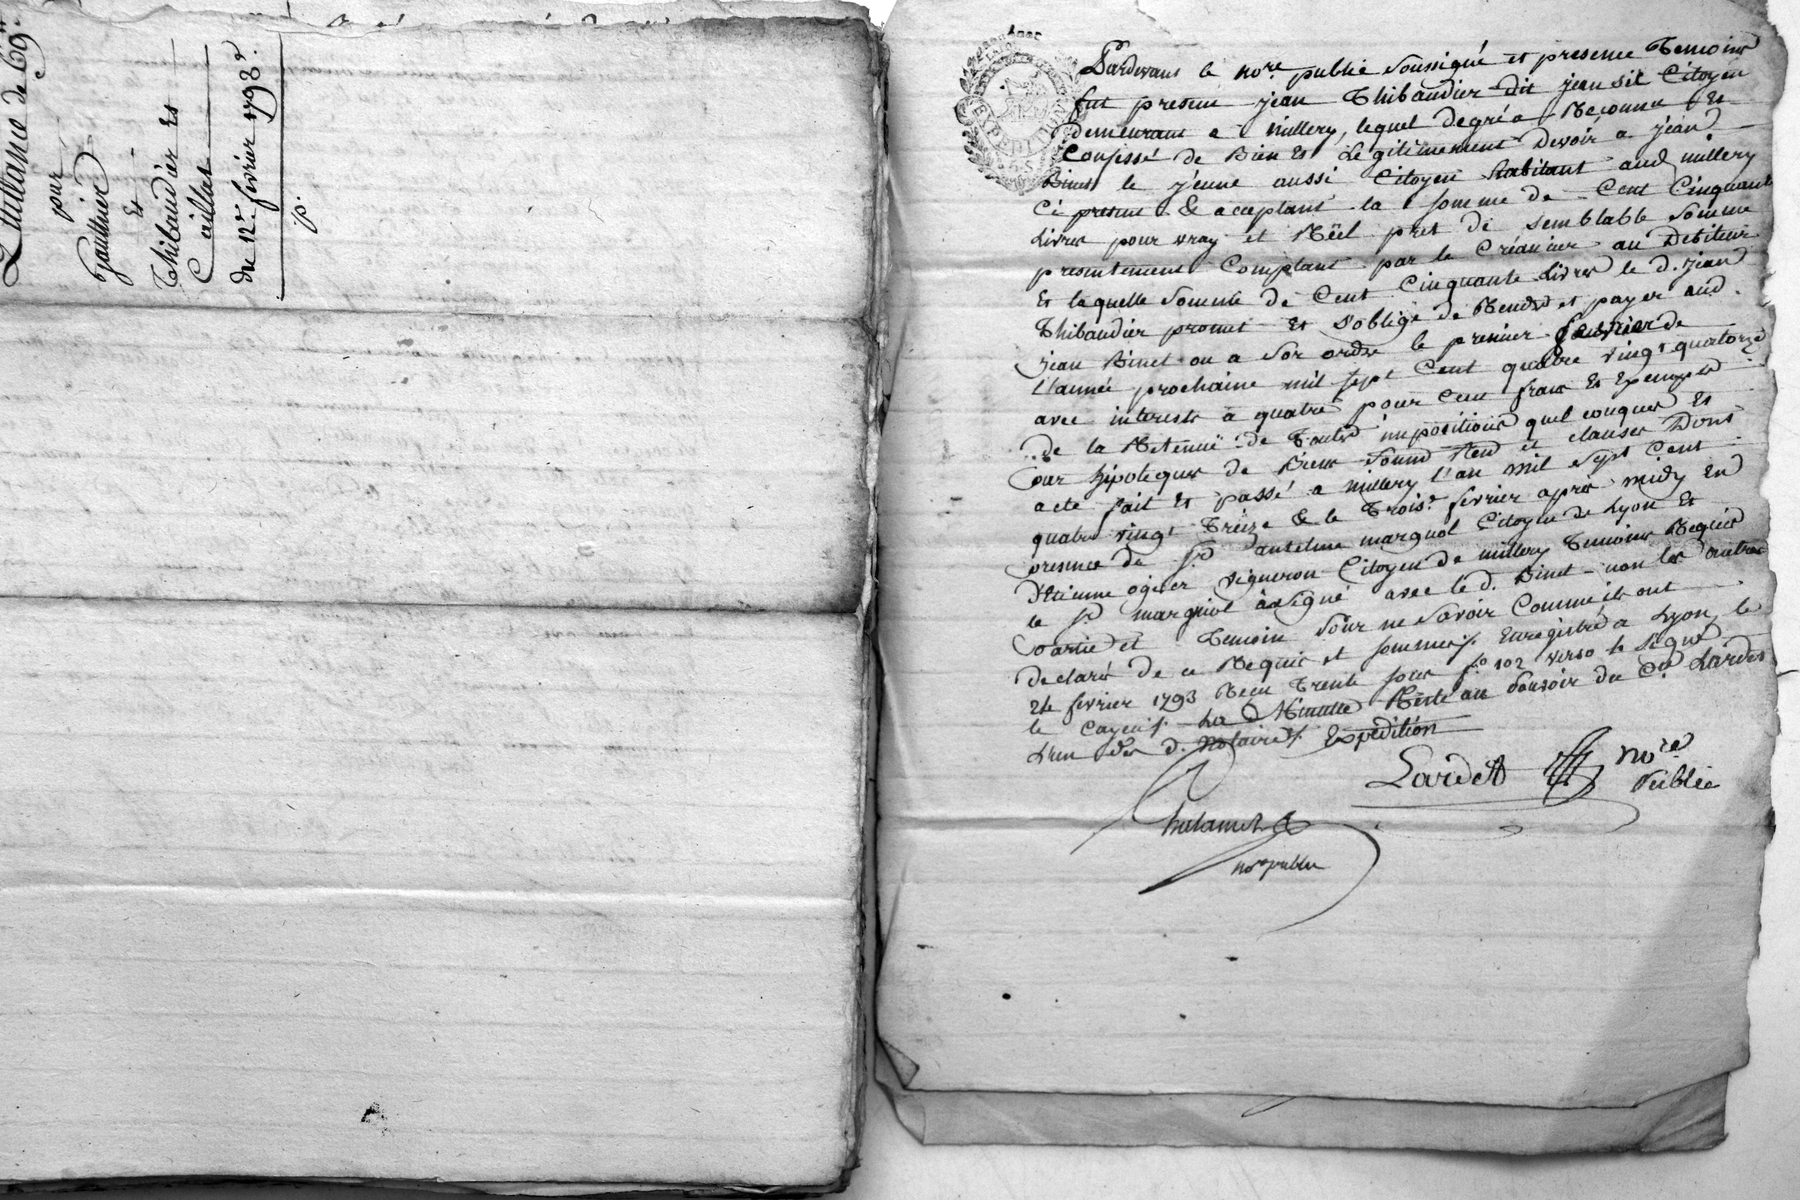 Quittance de 69#
pour
Gaulthier
Et
Thibaudier Et
Caillat
du 12e. février 1793.
p.
EXPEDITION
Pardevant le nore. public soussigné et presence Temoins
fut present jean Thibaudier dit jean sil Citoyen
demeurant a millery, lequel degré a Reconnu Et
Confessé de Bien Et Légitimement Devoir a jean
Binet le jeune aussi Citoyen habitant aud millery
Ci present & acceptant la somme de Cent Cinquante
Livres pour vray et Réel pret de semblable somme
presentement Comptant par le Créancier au Debiteur
Et laquelle somme de Cent Cinquante Livres le d. jean
Thibaudier promet Et s'oblige de Rendre et payer aud.
jean Binet ou a son ordre le premier fevrier de
l'année prochaine mil sept Cent quatre vingt quatorze
avec interests a quatre pour Cent frais Et
de la Retenue de Toutes impositions quelconques Et
par hipoteques de Biens soumn Ren et clauses Dont
acte fait Et passé a millery l'an mil sept Cent
quatre vingt Treize & le Trois. février après midy En
presence de sr. anthelme marguol Citoyen de Lyon Et
D'Etienne ogier vigneron Citoyen de millery Temoins Requis
le sr. marguiol a signé avec le d. Binet non les autres
partie et Temoin pour ne savoir Comme ils ont
declaré de ce Requis et sommés /. Enregistré a Lyon le
24 février 1793 Recu Trente sous fo. 102 verso le signé
le Cayeu /. La Minute Reste au pouvoir du Cn. Lardet
L'un des d. Notaires /. Expédition
Lardet nore
Public
nore public